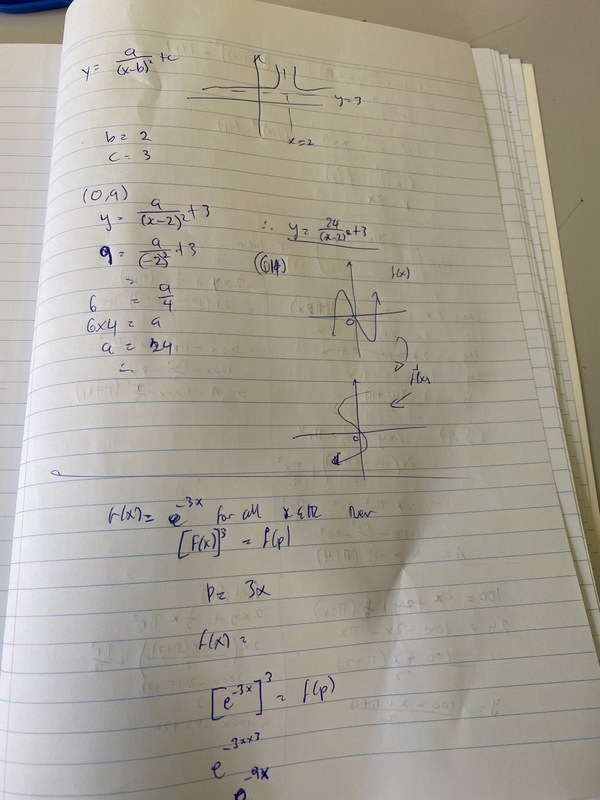 y = a/(x-b)² + c
y=3
x=2
b = 2
c = 3
(0,9)
y = a/(x-2)² + 3
∴ y = 24/(x-2)² + 3
9 = a/(-2)² + 3
=
6 = a/4
6×4 = a
a = 24
∴
f(x)
O
f⁻¹(x)
O
f(x) = e^-3x for all x ∈ R then
[f(x)]³ = f(p)
p = 3x
f(x) =
[e^-3x]³ = f(p)
e^-3x×3
e^-9x